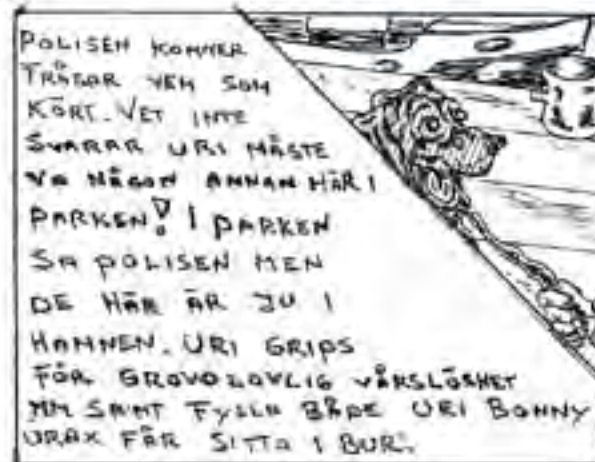 POLISEN KOMMER
FRÅGAR VEM SOM
KÖRT. VET INTE
SVARAR URI MÅSTE
VA NÅGON ANNAN HÄR I
PARKEN? I PARKEN
SA POLISEN MEN
DE HÄR ÄR JU I
HAMNEN. URI GRIPS
FÖR GROVOLOVLIG VÅRSLÖSHET
MM SAMT FYLLA BÅDE URI BONNY
URAX FÅR SITTA I BUR.